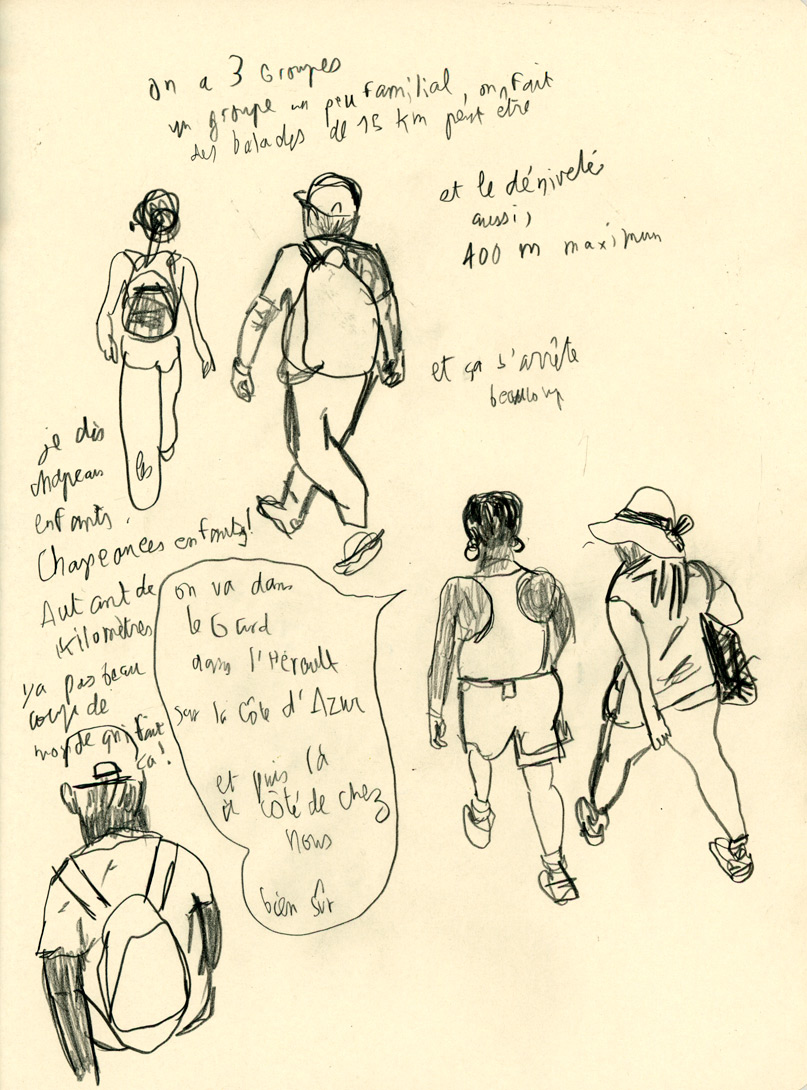 on a 3 Groupes
un groupe un peu familial, on fait
des balades de 15 km peut être
et le dénivelé
aussi,
400 m maximum
et ça s'arrête
beaucoup
je dis
chapeau
enfants.
Chapeau les enfants!
Autant de
Kilomètres
ya pas beau
coup de
monde qui fait
ça!
on va dans
le Gard
dans l'Hérault
sur la côte d'Azur
et puis là
à côté de chez
nous
bien sûr